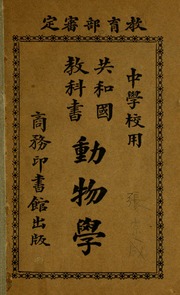 教育部審定
中學校用
共和國
教科書
動物學
商務印書館出版